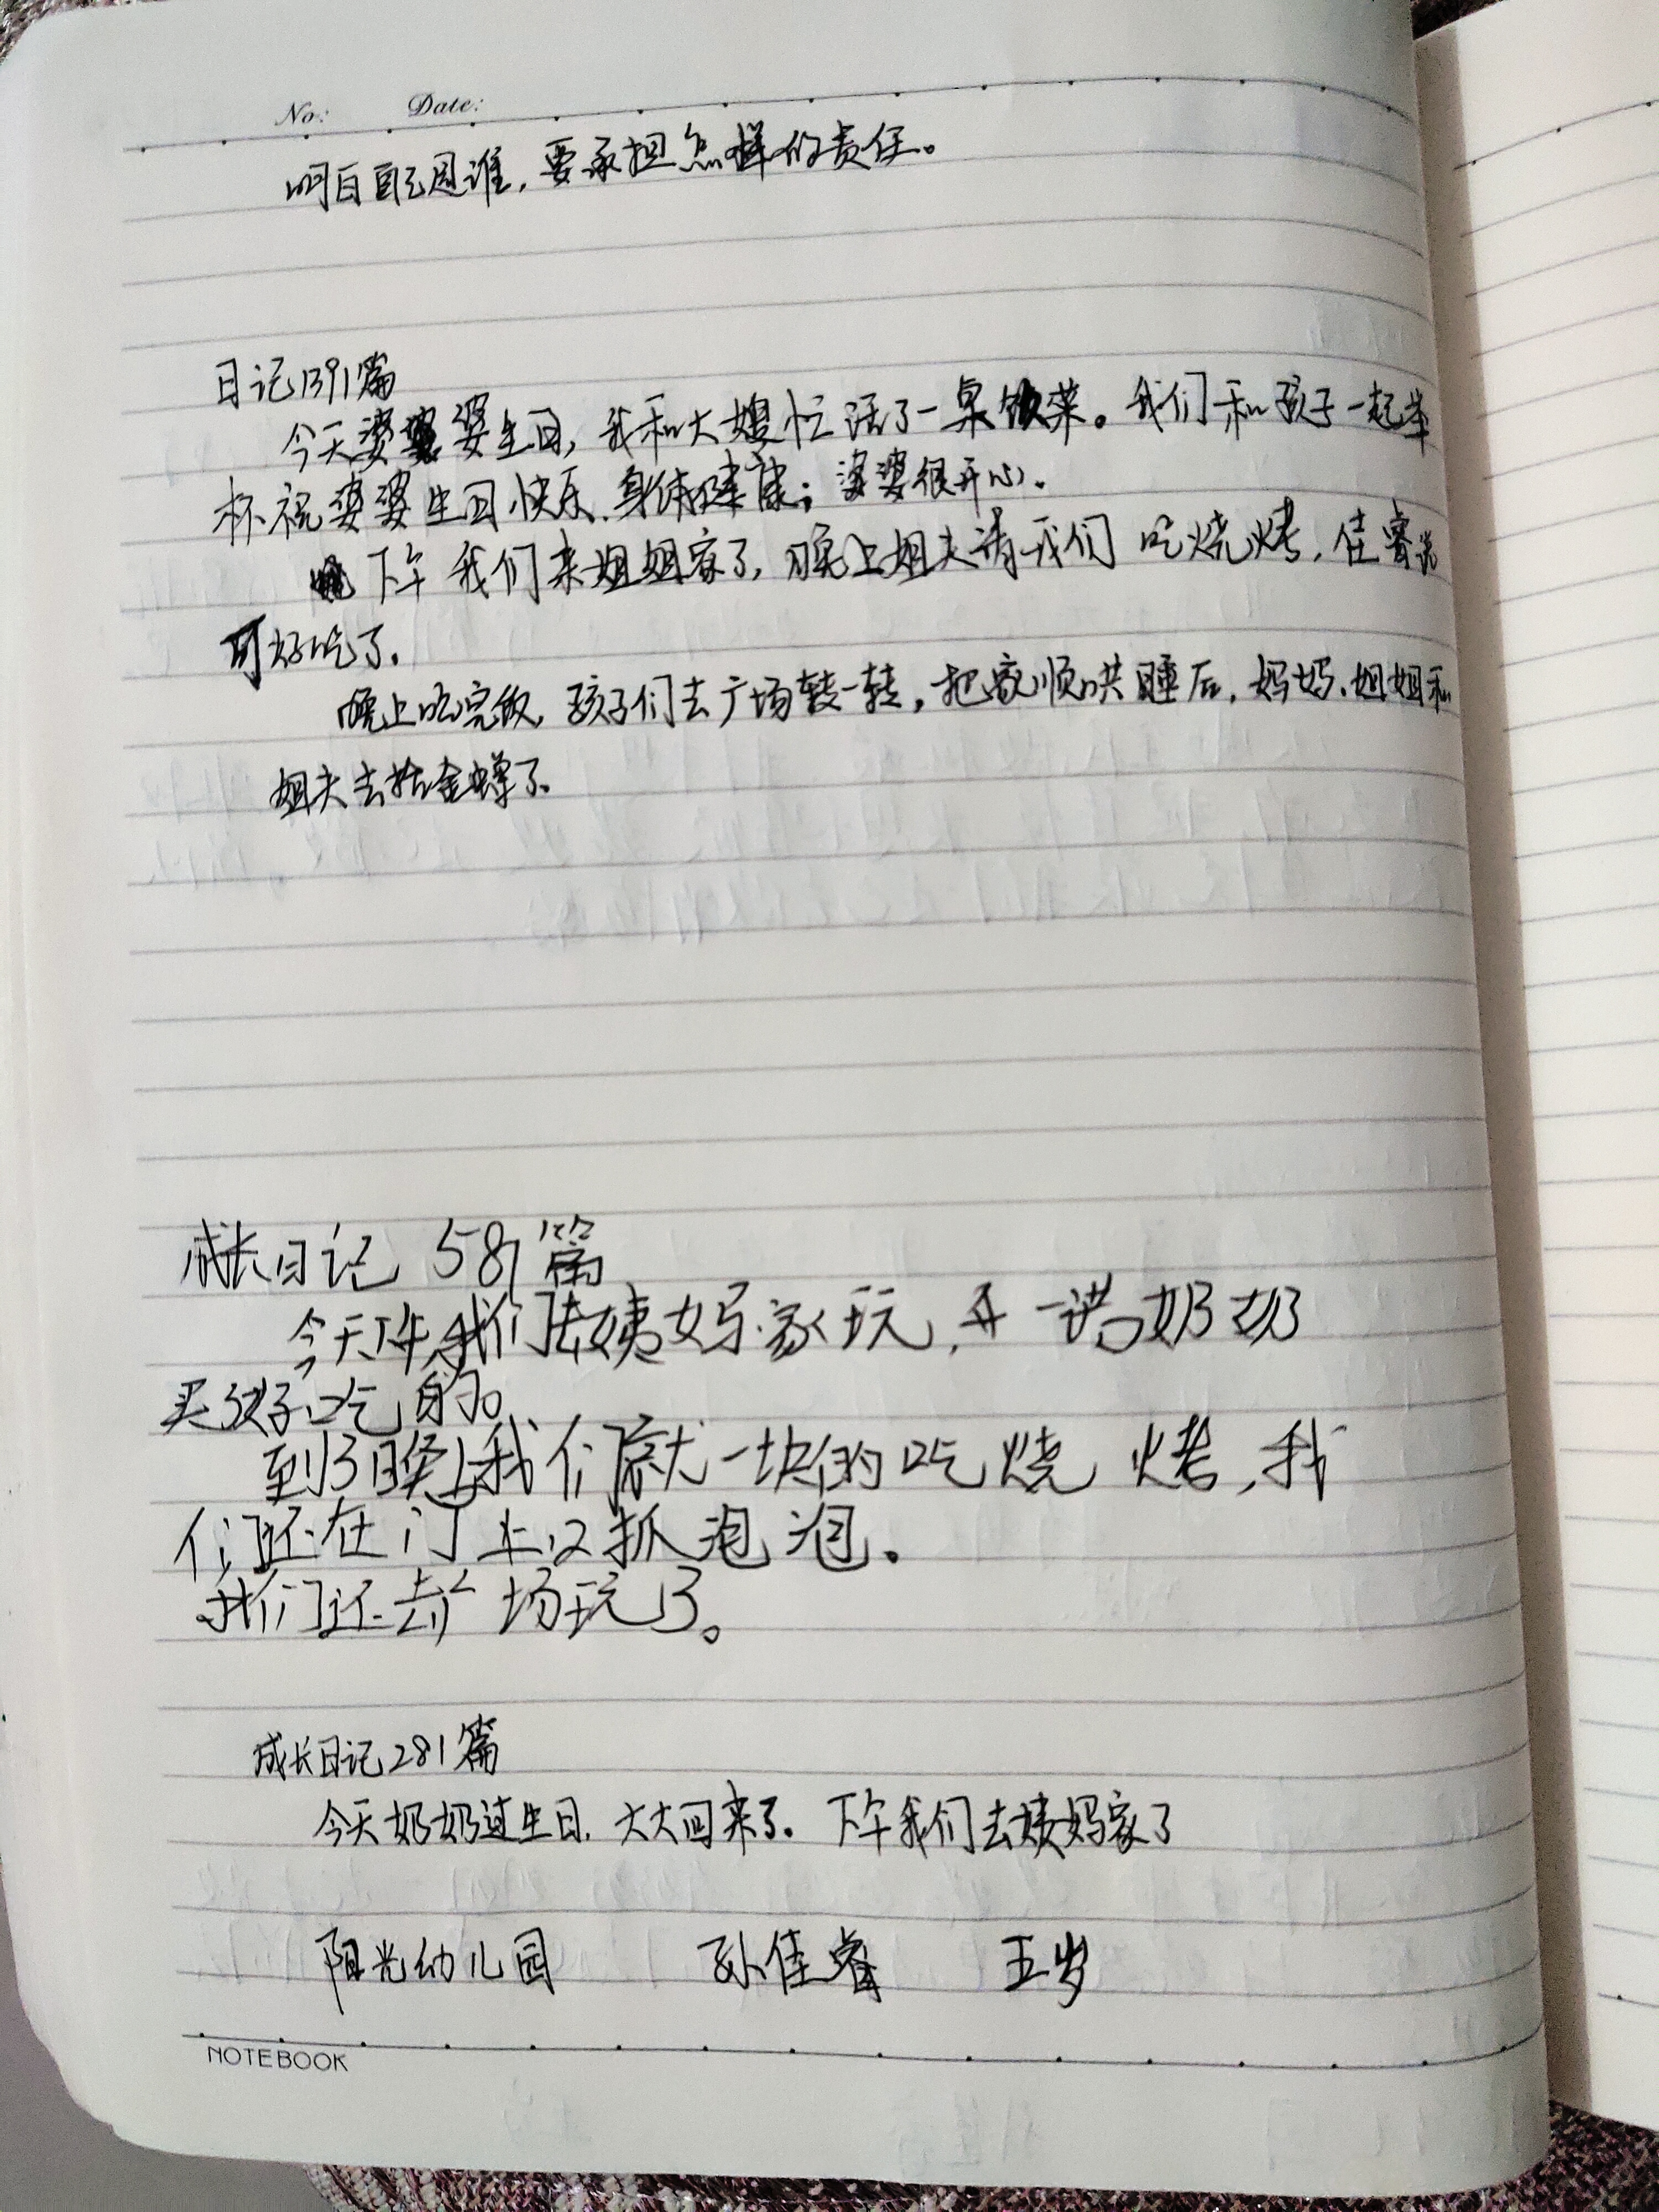 No: Date:
明白自己是谁,要承担怎样的责任。
日记1391篇
今天婆婆生日,我和大嫂忙活了一桌饭菜。我们和孩子一起举
杯祝婆婆生日快乐、身体健康;婆婆很开心。
下午我们来姐姐家了,晚上姐夫请我们吃烧烤,佳睿说
可好吃了。
晚上吃完饭,孩子们去广场转一转,把家顺哄睡后,妈妈、姐姐和
姐夫去抬金蝉了。
成长日记 581篇
今天下午我们去姨妈家玩,奶奶
买好吃的。
到了晚上我们就一块的吃烧烤,我
们还在门上又抓泡泡。
我们还去广场玩了。
成长日记281篇
今天奶奶过生日,大大回来了。下午我们去姨妈家了
阳光幼儿园 孙佳睿 五岁
NOTEBOOK